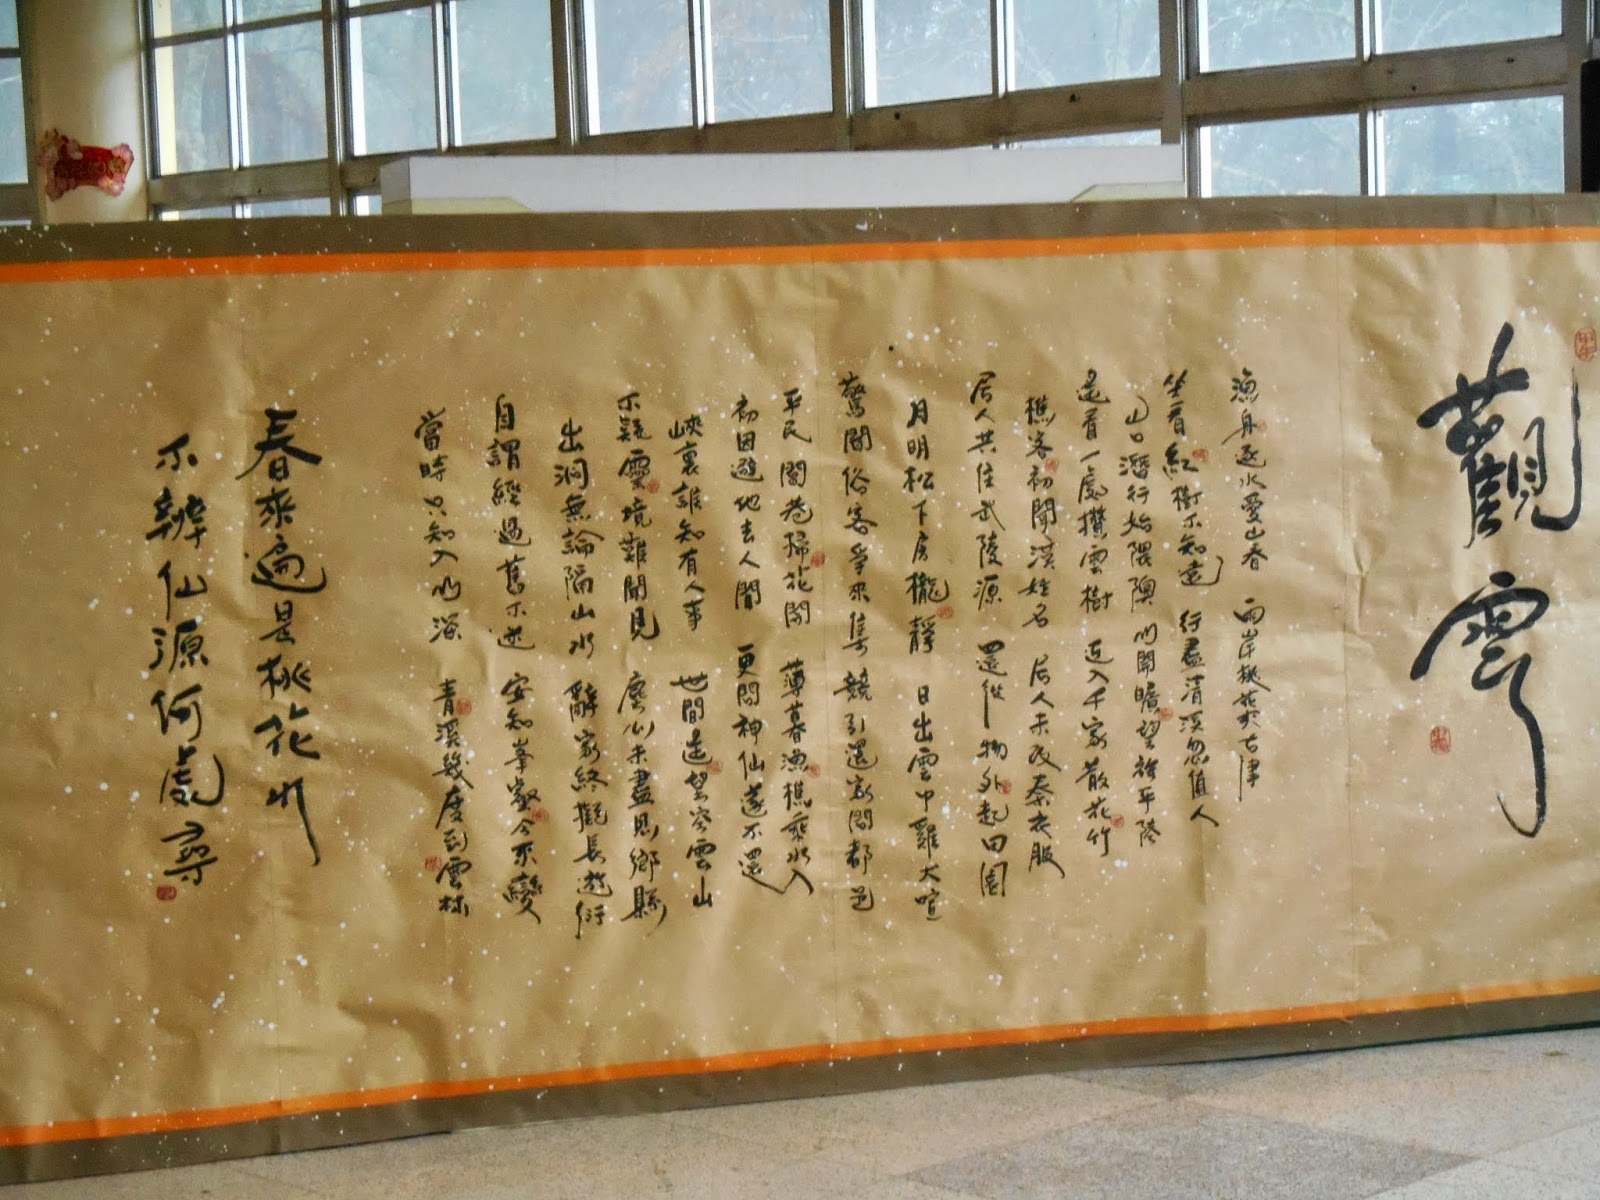 觀雲
漁舟逐水愛山春 兩岸桃花古津
坐看紅樹不知遠 行盡清溪忽值人
山口潛行始隈隩 開曠望旋平陸
遙看一處攢雲樹 近入千家散花竹
樵客初聞漢姓名 居人未改秦衣服
居人共住武陵源 還從物外起田園
月明松下房櫳靜 日出雲中雞犬喧
驚聞俗客爭來集 競引還家問都邑
平民閭巷掃花開 薄暮漁樵乘水入
初因避地去人間 更問神仙遂不還
峽裏誰知有人事 世間遙望空雲山
不疑靈境難聞見 塵心未盡思鄉縣
出洞無論隔山水 辭家終擬長遊衍
自謂經過舊不迷 安知峯壑今來變
當時只知入山深 青溪幾度到雲林
春來遍是桃花水
不辨仙源何處尋